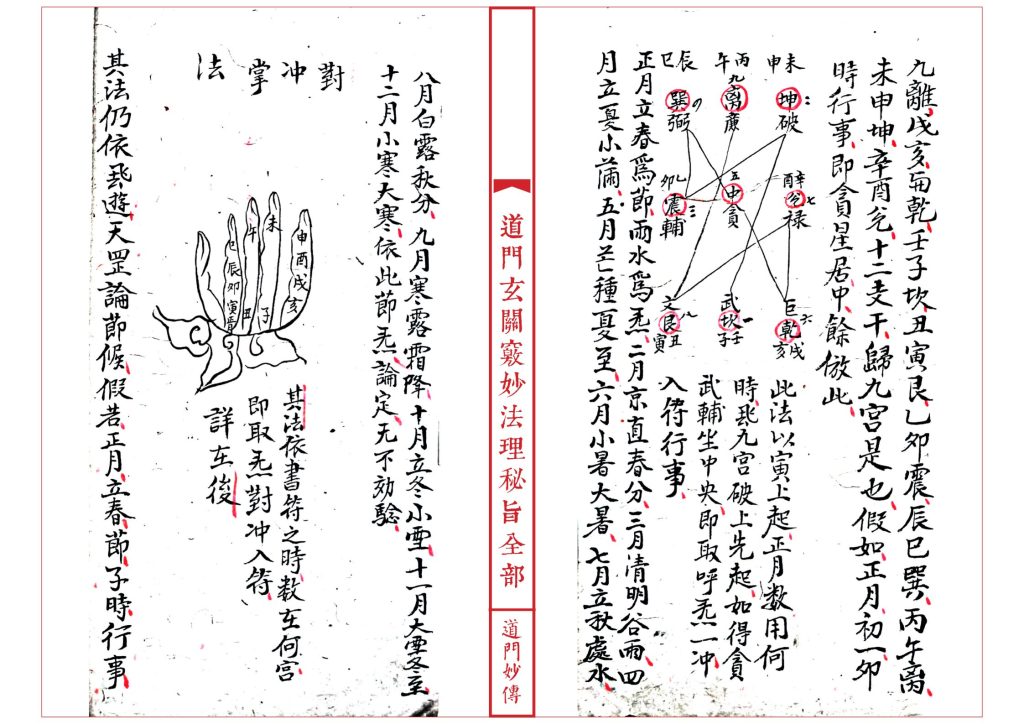 九離戊亥乾壬子坎丑寅艮乙卯震辰巳巽丙午离
未申坤辛酉兌十二支干歸九宮是也假如正月初一卯
時行事即貪星居中餘倣此
未申
坤二
破
丙午
九离
廉
辰巳
巽四
弼
辛酉
兌七
禄
五中
貪
乙卯
震三
輔
巨六
乾
戌亥
武
坎一
壬子
文
艮八
丑寅
此法以寅上起正月數用何
時飛九宮破上先起如得貪
武輔坐中央即取呼炁一冲
入符行事
正月立春爲節雨水爲炁二月京直春分三月清明谷雨四
月立夏小蒲五月芒種夏至六月小暑大暑七月立秋處水
道門玄關竅妙法理秘旨全部
道門妙傳
八月白露秋分九月寒露霜降十月立冬小雪十一月大雪冬至
十二月小寒大寒依此節炁論定无不効驗
對冲掌法
申酉戌亥
未
子
午
丑
巳辰卯寅
其法依書符之時数在何宮
即取炁對冲入符
詳在後
其法仍依飛遊天罡論節候假若正月立春節子時行事